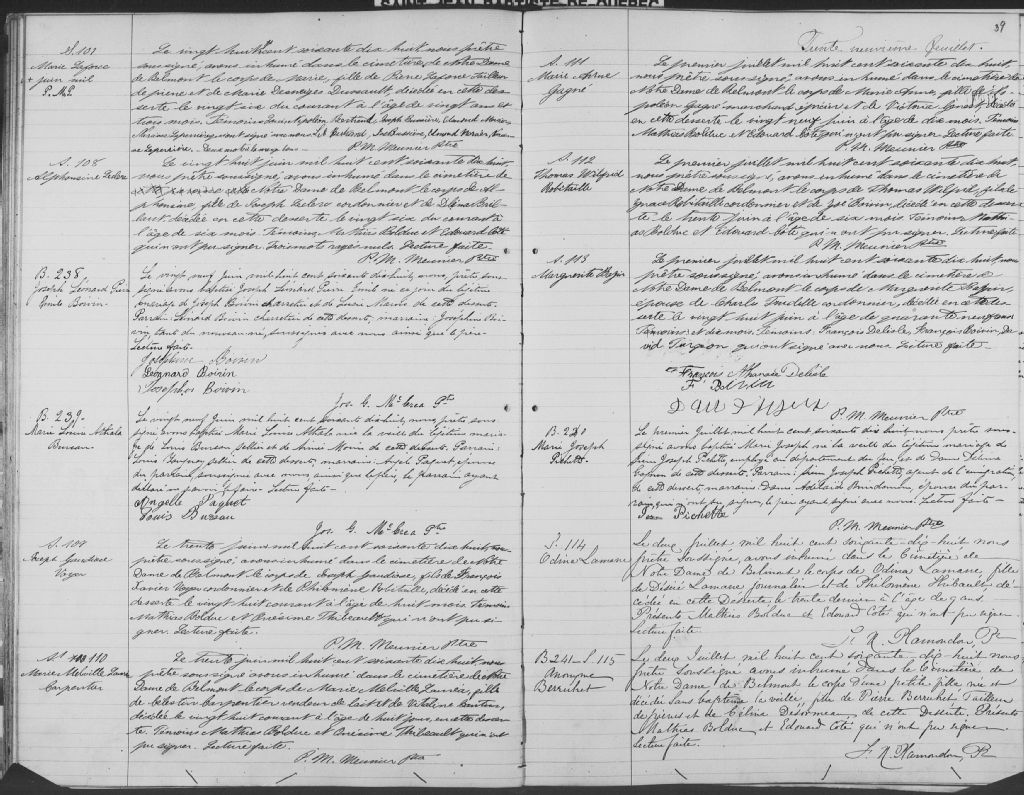 SAINT JEAN BAPTISTE DE QUEBEC
S. 107
Marie Laforce
+ juin mil
P. M. P.
Le vingt huit cent soixante dix huit, nous prêtre
soussigné, avons inhumé dans le cimetière, de Notre Dame
de Belmont le corps de Marie, fille de Pierre Laforce Tailleur
de pierre et de Marie Desneiges Dussault, décédée en cette des
serte le vingt six du courant à l'âge de vingt ans et
trois mois. Témoins Louis Napoléon Bertrand, Joseph
P. M. Meunier Ptre
S. 108
Alphonsine Leclerc
Le vingt huit juin mil huit cent soixante dix huit,
nous prêtre soussigné, avons inhumé dans le cimetière de
Notre Dame de Belmont le corps de Al-
phonsine, fille de Joseph Leclerc cordonnier et de
décédée en cette desserte le vingt six du courant à
l'âge de six mois. Témoins, Mathias Bolduc et Edouard Coté
qui n'ont pu signer. Trois mots rayés nuls. Lecture faite
P. M. Meunier Ptre
B. 238
Joseph Léonard Pierre
Emile Boivin
Le vingt neuf Juin mil huit cent soixante dix huit, nous, prêtre sous-
signé avons baptisé Joseph Léonard Pierre Emile né ce jour du légitime
mariage de Joseph Boivin charretier et de Lucie de cette desserte.
Parrain: Léonard Boivin charretier de cette desserte, marraine: Josephine Boi-
vin, tante du nouveau-né, soussignés avec nous ainsi que le père.
Lecture faite.
Joséphine Boivin
Léonnard Boivin
Josephe Boivin
Jos. G. McCrea Ptre
B. 239
Marie Louise Athala
Bureau
Le vingt neuf Juin mil huit cent soixante dix huit, nous prêtre sous-
signé avons baptisé Marie Louise Athala née la veille du légitime maria-
ge de Louis Bureau sellier et de Annie Morin de cette desserte. Parrain:
Louis sellier de cette desserte, marraine: Angèle Paquet épouse
du parrain, soussignée avec nous, ainsi que le père, le parrain ayant
déclaré ne pouvoir le faire. Lecture faite.
Angelle Paquet
Louis Bureau
Jos. G. McCrea Ptre
S. 109
Joseph Gaudiose
Voyer
Le trente juin mil huit cent soixante dix huit, nous
prêtre soussigné, avons inhumé dans le cimetière de Notre
Dame de Belmont le corps de Joseph Gaudiose, fils de François
Xavier Voyer cordonnier et de Philomène Robitaille, décédé en cette
desserte le vingt huit courant à l'âge de huit mois. Témoins
Mathias Bolduc et Onésime Thibeault qui n'ont pu si-
gner. Lecture faite.
P. M. Meunier Ptre
S. 110
Marie Melville Laura
Carpentier
Le trente juin mil huit cent soixante dix huit, nous
prêtre soussigné avons inhumé dans le cimetière de Notre
Dame de Belmont le corps de Marie Melville Laura, fille
de Célestin Carpentier vendeur de lait et de
décédée le vingt huit courant à l'âge de huit jours, en cette desser-
te. Témoins Mathias Bolduc et Onésime Thibeault qui n'ont
pu signer. Lecture faite.
P. M. Meunier Ptre
39
Trente neuvième feuillet.
S. 111
Marie Anne
Gagné
Le premier juillet mil huit cent soixante dix huit,
nous prêtre soussigné, avons inhumé dans le cimetière de
Notre Dame de Belmont le corps de Marie Anne, fille de Na-
poléon Gagné marchand épicier et de Victoria décédée
en cette desserte le vingt neuf juin à l'âge de dix mois. Témoins
Mathias Bolduc et Edouard Coté qui n'ont pu signer. Lecture faite
P. M. Meunier Ptre
S. 112
Thomas Wilfrid
Robitaille
Le premier juillet mil huit cent soixante dix huit,
nous prêtre soussigné, avons inhumé dans le cimetière de
Notre Dame de Belmont le corps de Thomas Wilfrid, fils de
Ignace Robitaille cordonnier et de Boivin, décédé en cette desser-
te le trente juin à l'âge de six mois. Témoins Mathi-
as Bolduc et Edouard Coté qui n'ont pu signer. Lecture faite
P. M. Meunier Ptre
S. 113
Marguerite Pepin
Le premier juillet mil huit cent soixante dix huit, nous
prêtre soussigné, avons inhumé dans le cimetière de
Notre Dame de Belmont le corps de Marguerite Pepin,
épouse de Charles Trudelle cordonnier, décédée en cette des-
serte le vingt huit juin à l'âge de quarante neuf ans
et dix mois. Témoins: François Delisle, François Boivin, Da-
vid Turgeon qui ont signé avec nous. Lecture faite
François Athanase Delisle
F. Boivin
David Turgeon
P. M. Meunier Ptre
B. 240
Marie Joseph
Pichette
Le premier Juillet mil huit cent soixante dix huit nous prêtre sous-
signé avons baptisé Marie Joseph né la veille du légitime mariage de
Jean Joseph Pichette employé au département du feu et de Dame
de cette desserte. Parrain: Jean Joseph Pichette, agent de l'émigration,
de cette desserte, marraine Dame Adélaïde épouse du par-
rain, qui n'ont pu signer, le père ayant signé avec nous. Lecture faite.
Jean Pichette
P. M. Meunier Ptre
S. 114
Odina Lamarre
Le deux Juillet mil huit cent soixante-dix-huit nous
prêtre soussigné, avons inhumé dans le Cimetière de
Notre Dame de Belmont le corps de Odina Lamarre, fille
de Désiré Lamarre journalier et de Philomène Thibault, dé-
cédée en cette Desserte le trente dernier à l'âge de 9 ans.
Présents Mathias Bolduc et Edouard Coté qui n'ont pu signer
Lecture faite.
F. X. Plamondon, Ptre
B 241 - S. 115
Anonyme
Berruhet
Le deux Juillet mil huit cent soixante-dix-huit nous
prêtre soussigné avons inhumé dans le Cimetière de
Notre Dame de Belmont le corps d'une petite fille née et
décédée sans baptême la veille, fille de Pierre Berruhet Tailleur
de pierres et de Célina Désormeau de cette Desserte. Présents
Mathias Bolduc et Edouard Coté qui n'ont pu signer
Lecture faite.
F. X. Plamondon, Ptre